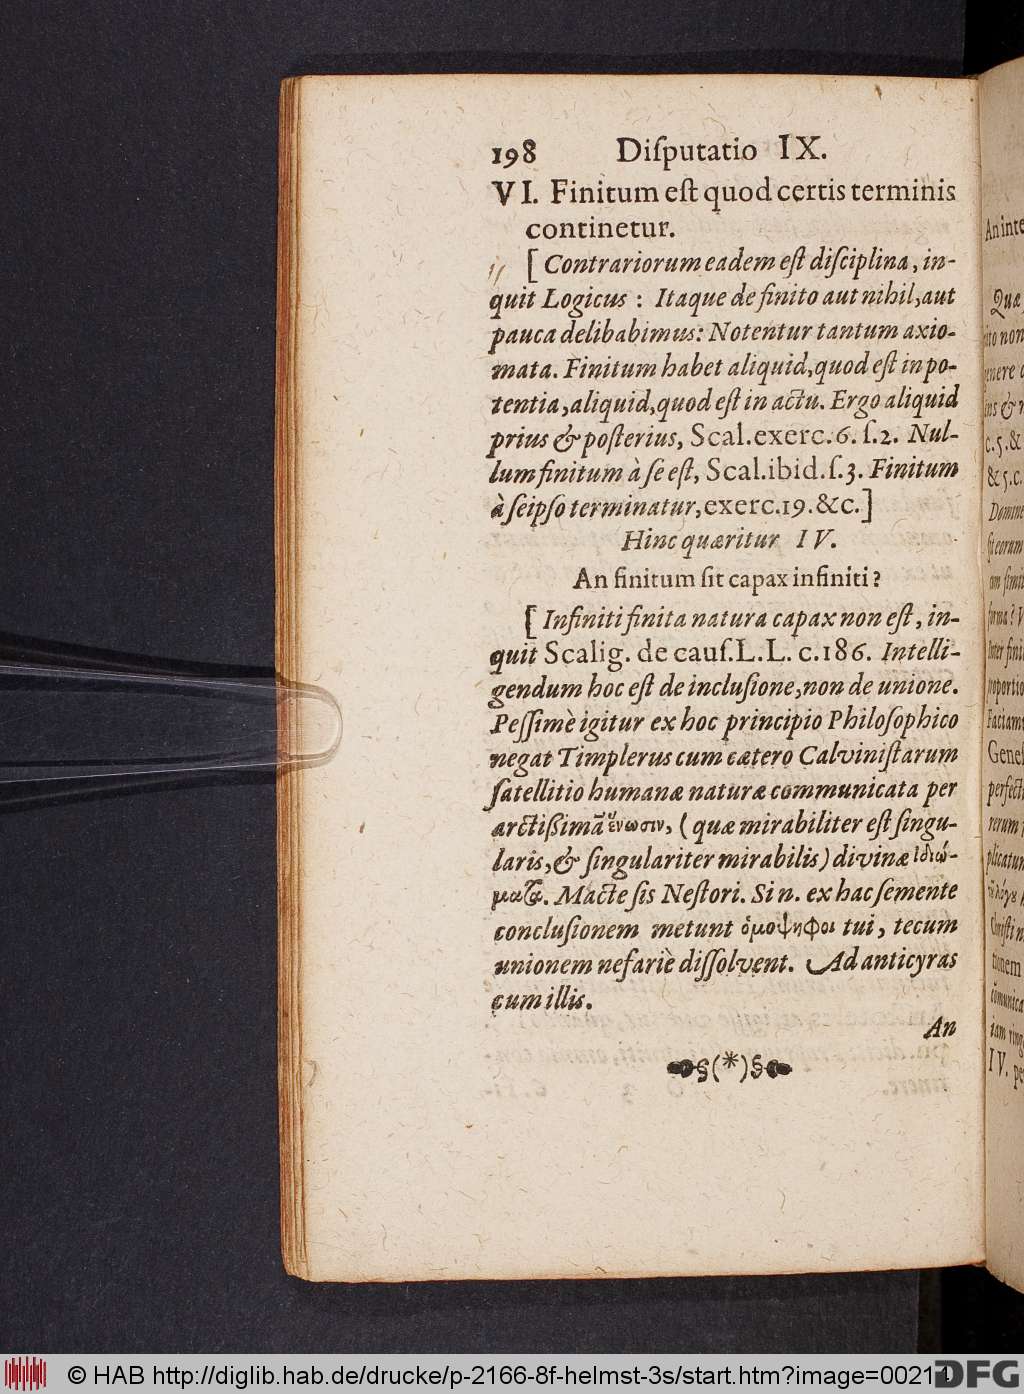 198 Diſputatio IX.
VI. Finitum eſt quod certis terminis
continetur.
[ Contrariorum eadem eſt diſciplina, in-
quit Logicus : Itaque de finito aut nihil, aut
pauca delibabimus: Notentur tantum axio-
mata. Finitum habet aliquid, quod eſt in po-
tentia, aliquid, quod eſt in actu. Ergo aliquid
prius & poſterius, Scal. exerc. 6. ſ. 2. Nul-
lum finitum à ſe eſt, Scal. ibid. ſ. 3. Finitum
à ſeipſo terminatur, exerc. 19. &c. ]
Hinc quæritur IV.
An finitum ſit capax infiniti?
[ Infiniti finita natura capax non eſt, in-
quit Scalig. de cauſ. L. L. c. 186. Intelli-
gendum hoc eſt de incluſione, non de unione.
Peſſimè igitur ex hoc principio Philoſophico
negat Timplerus cum cætero Calviniſtarum
ſatellitio humanæ naturæ communicata per
arctißimã ἕνωσιν, ( quæ mirabiliter eſt ſingu-
laris, & ſingulariter mirabilis) divinæ ἰδιώ-
ματα. Macte ſis Neſtori. Si n. ex hac ſemente
concluſionem metunt ὁμοψηφοι tui, tecum
unionem nefariè diſſolvent. Ad anticyras
cum illis.
An
§(*)§
An inte
Quæ
ito non
enere
c. 5. &
& 5. c.
Geneſ
perfect
rerum
plicatum
Chriſti
IV. pe
© HAB http://diglib.hab.de/drucke/p-2166-8f-helmst-3s/start.htm?image=00214
DFG